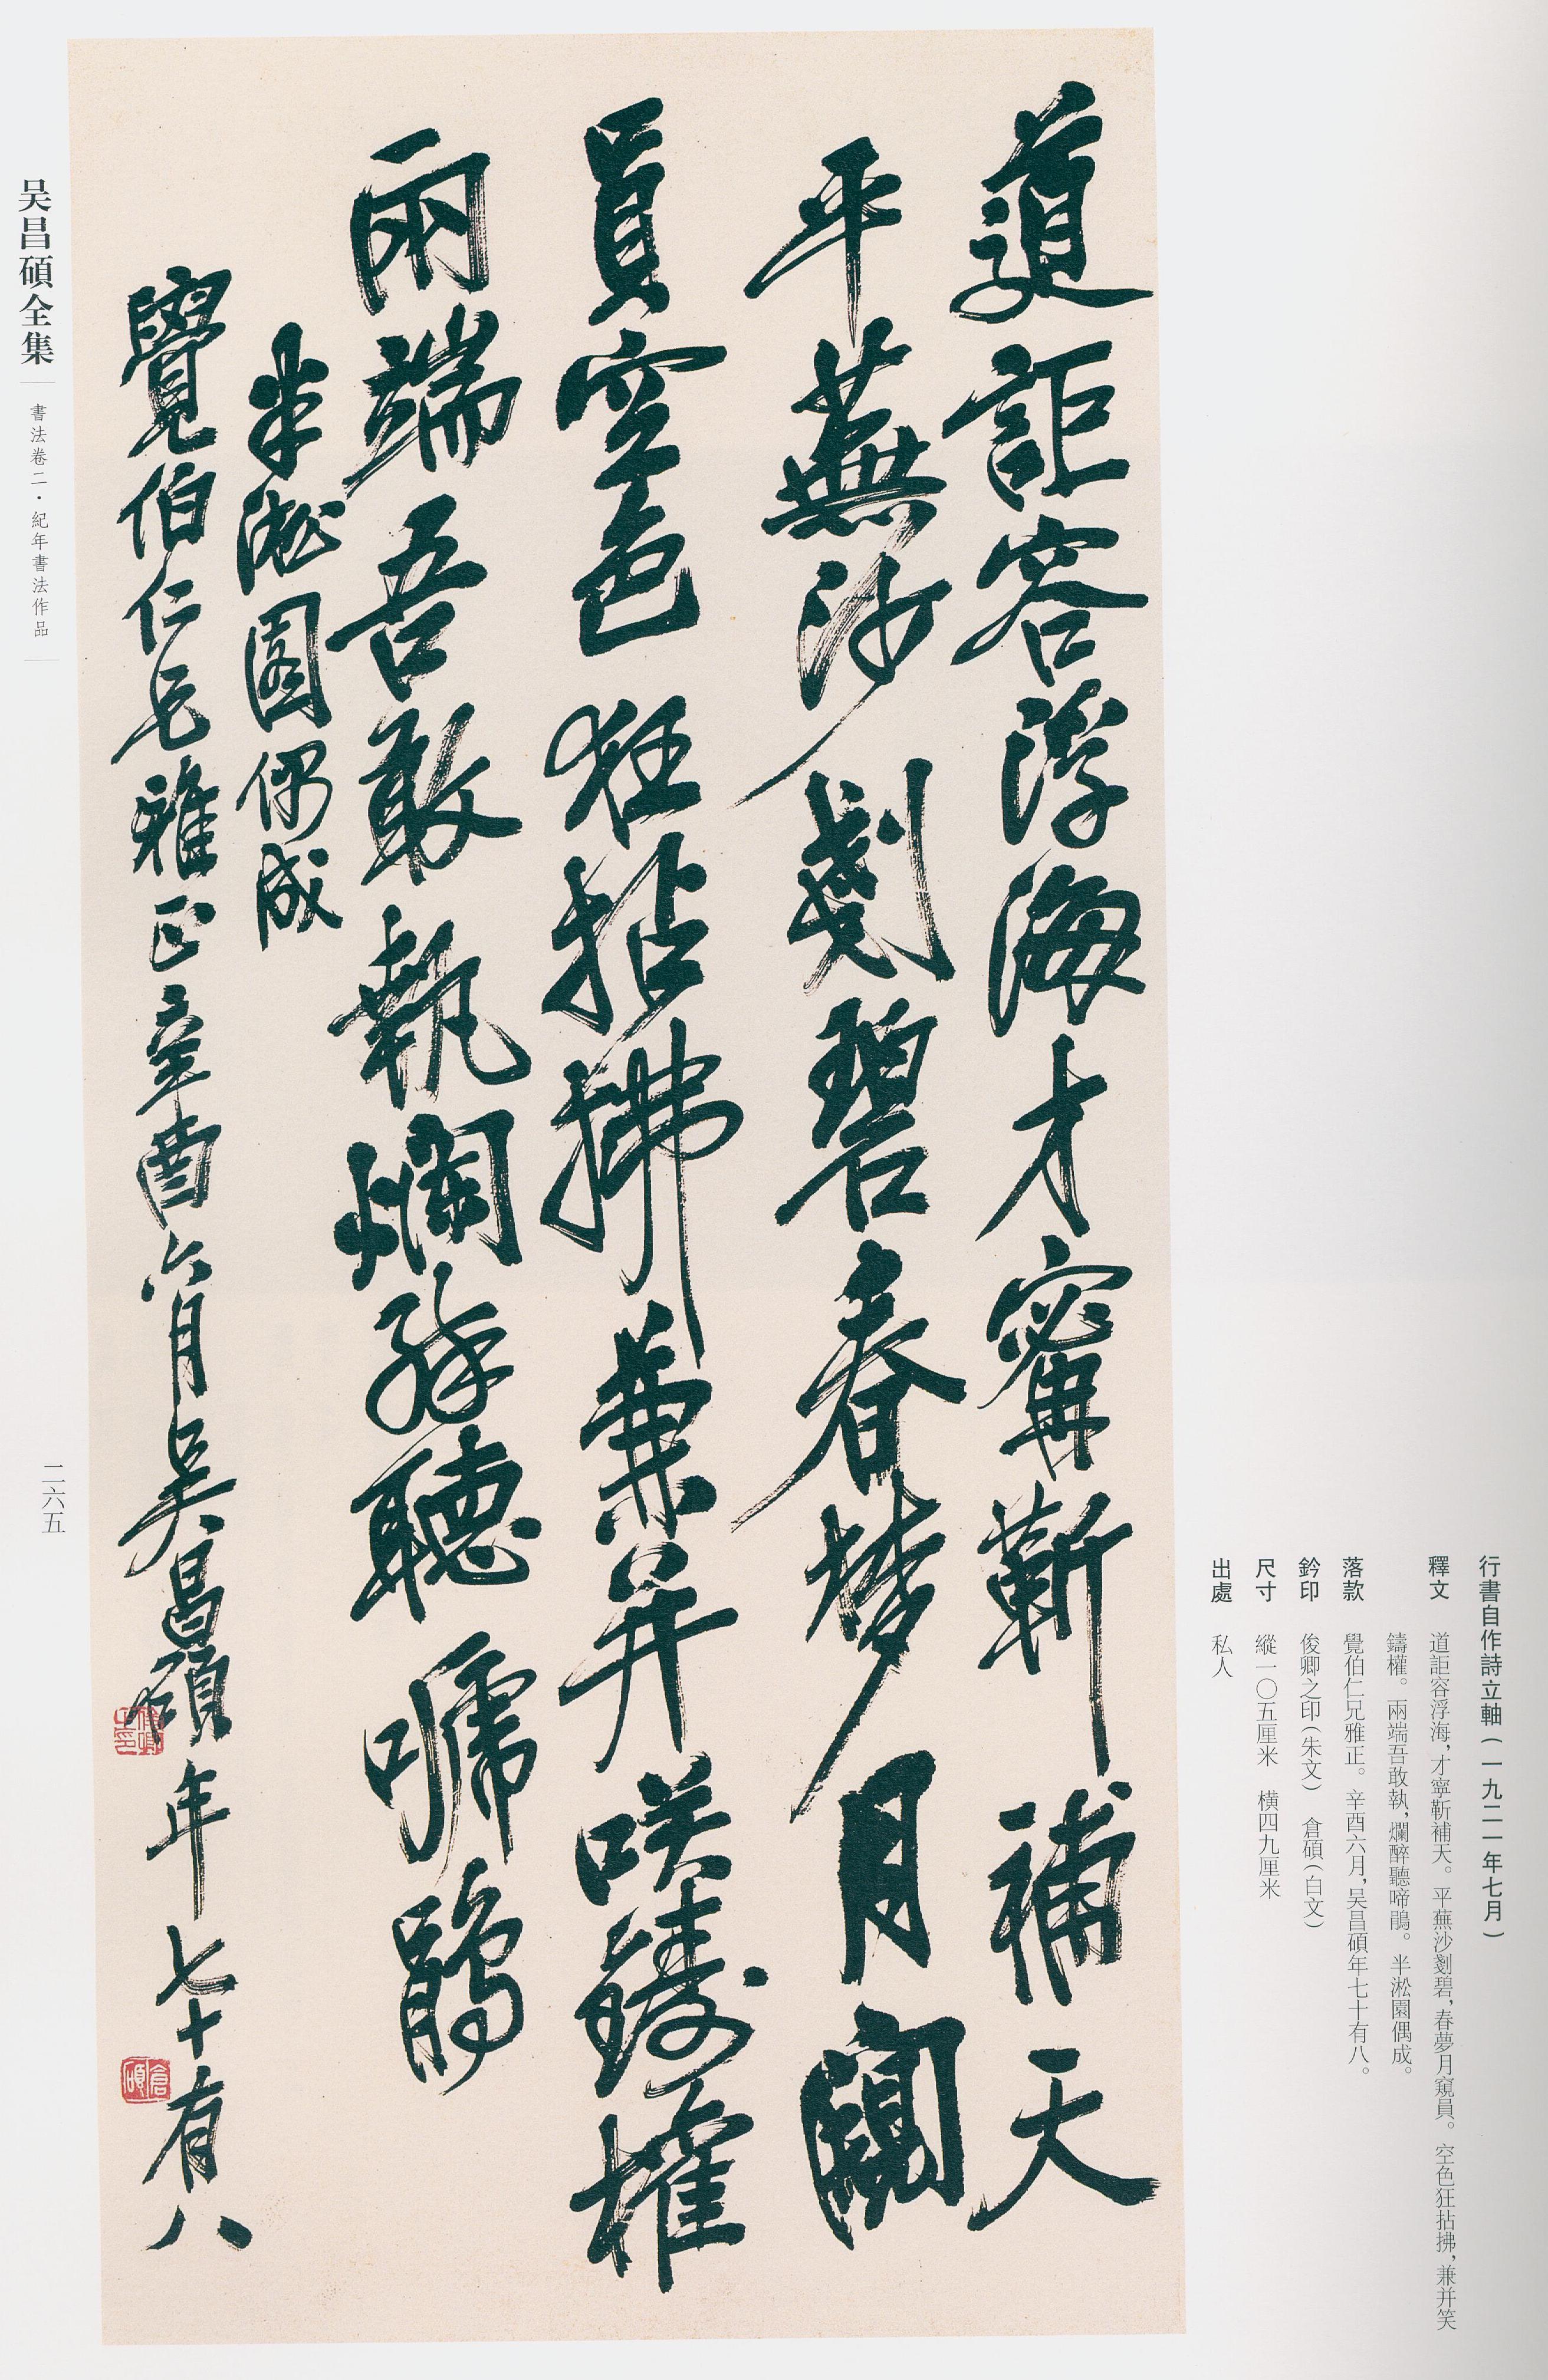 行書自作詩立軸(一九二一年七月)
釋文 道詎容浮海,才寧靳補天。平蕪沙剗碧,春夢月窺員。空色狂拈拂,兼并笑
鑄權。兩端吾敢執,爛醉聽啼鵑。半淞園偶成。
落款 覺伯仁兄雅正。辛酉六月,吴昌碩年七十有八。
鈐印 俊卿之印(朱文) 倉碩(白文)
尺寸 縱一〇五厘米 橫四九厘米
出處 私人
道詎容浮海才寗靳補天
平蕪沙剗碧春梦月闚
員空色狂拈拂兼并咲鑄權
兩端吾敢執爛醉聽嗁鵑
半淞園偶成
覺伯仁兄雅正辛酉六月吴昌碩年七十有八
俊卿之印
倉碩
吴昌碩全集
書法卷二·紀年書法作品
二六五